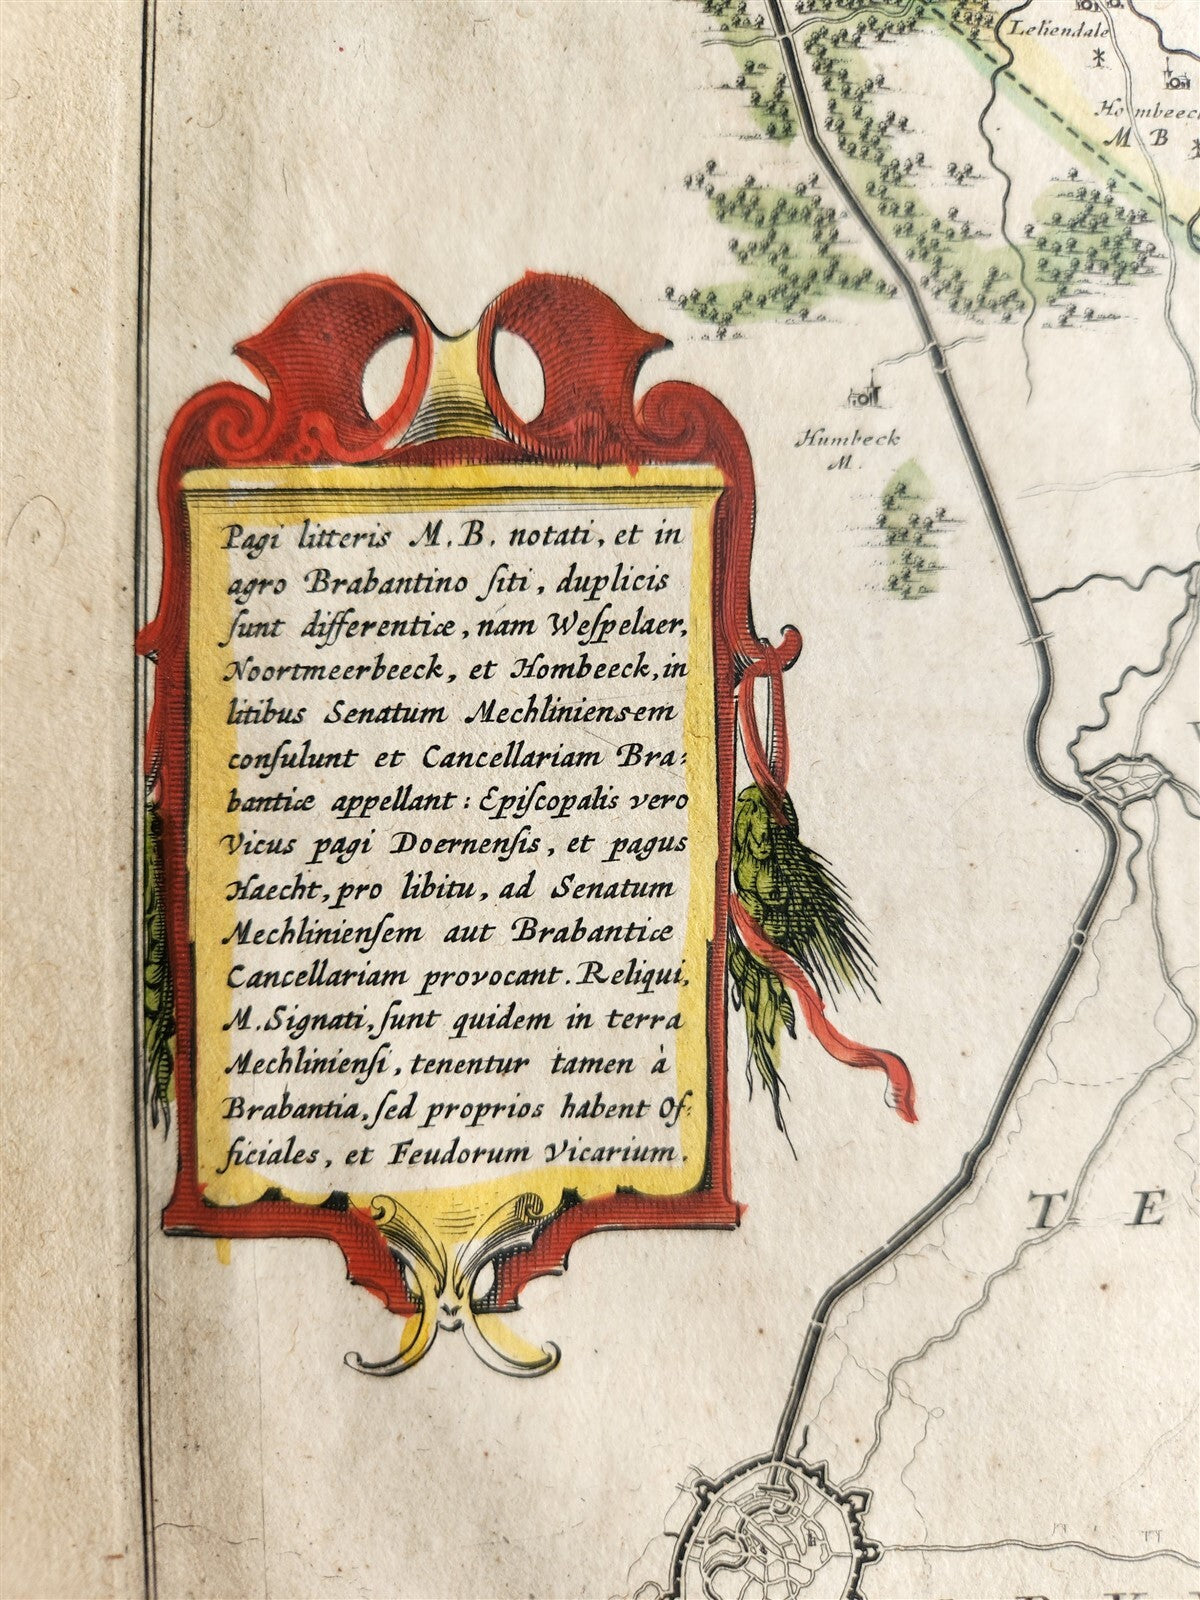 Leliendale
Hombeeck
M B
Humbeck
M.
Pagi litteris M. B. notati, et in
agro Brabantino ſiti, duplicis
ſunt differentiæ, nam Weſpelaer,
Noortmeerbeeck, et Hombeeck, in
litibus Senatum Mechliniensem
conſulunt et Cancellariam Bra:
bantiæ appellant: Epiſcopalis vero
Vicus pagi Doernenſis, et pagus
Haecht, pro libitu, ad Senatum
Mechlinienſem aut Brabantiæ
Cancellariam provocant. Reliqui,
M. Signati, ſunt quidem in terra
Mechlinienſi, tenentur tamen à
Brabantia, ſed proprios habent Of:
ficiales, et Feudorum Vicarium.
T E